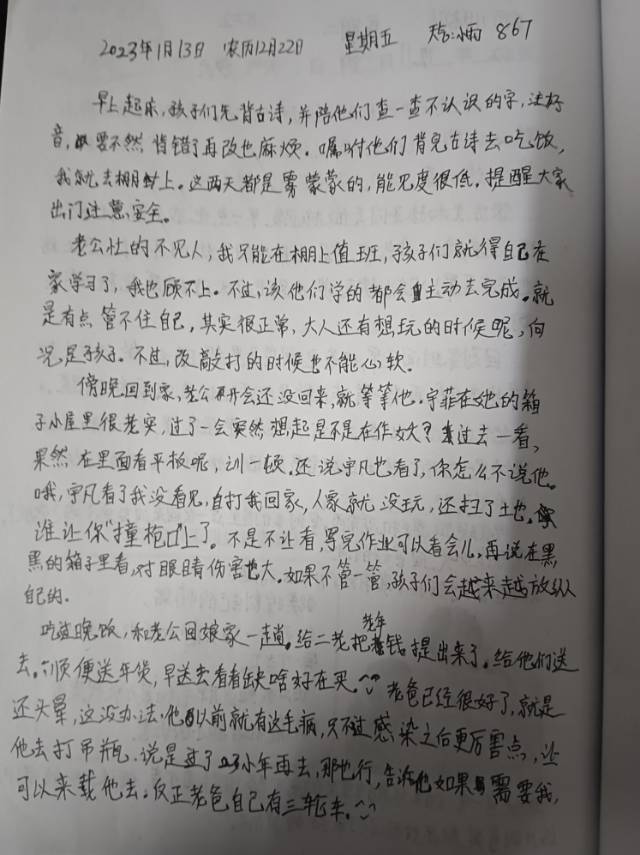 2023年1月13日 农历12月22日 星期五 天气:小雨 867
早上起床,孩子们先背古诗,并陪他们查一查不认识的字,注好
音,要不然背错了再改也麻烦。嘱咐他们背完古诗去吃饭,
我就去棚上。这两天都是雾蒙蒙的,能见度很低,提醒大家
出门注意安全。
老公忙的不见人,我只能在棚上值班,孩子们就得自己在
家学习了,我也顾不上。不过,该他们学的都会主动去完成。就
是有点管不住自己,其实很正常,大人还有想玩的时候呢,何
况是孩子。不过,改敲打的时候也不能心软。
傍晚回到家,老公开会还没回来,就等等他。宇菲在她的箱
子小屋里很老实,过了一会突然想起是不是在作妖?过去一看,
果然在里面看平板呢,训一顿。还说宇凡也看了,你怎么不说他。
哦,宇凡看了我没看见,自打我回家,人家就没玩,还扫了土地。
谁让你“撞枪口”上了。不是不让看,写完作业可以看会儿,再说在黑
黑的箱子里看,对眼睛伤害也大。如果不管一管,孩子们会越来越放纵
自己的。
吃过晚饭,和老公回娘家一趟。给二老把老年钱提出来了。给他们送
去。顺便送年货,早送去看看缺啥好在买。老爸已经很好了,就是
还头晕,这没办法,他以前就有这毛病,只不过感染之后更厉害点,让
他去打吊瓶,说是过了23小年再去,那也行,告诉他如果需要我,
可以来载他去。反正老爸自己有三轮车。